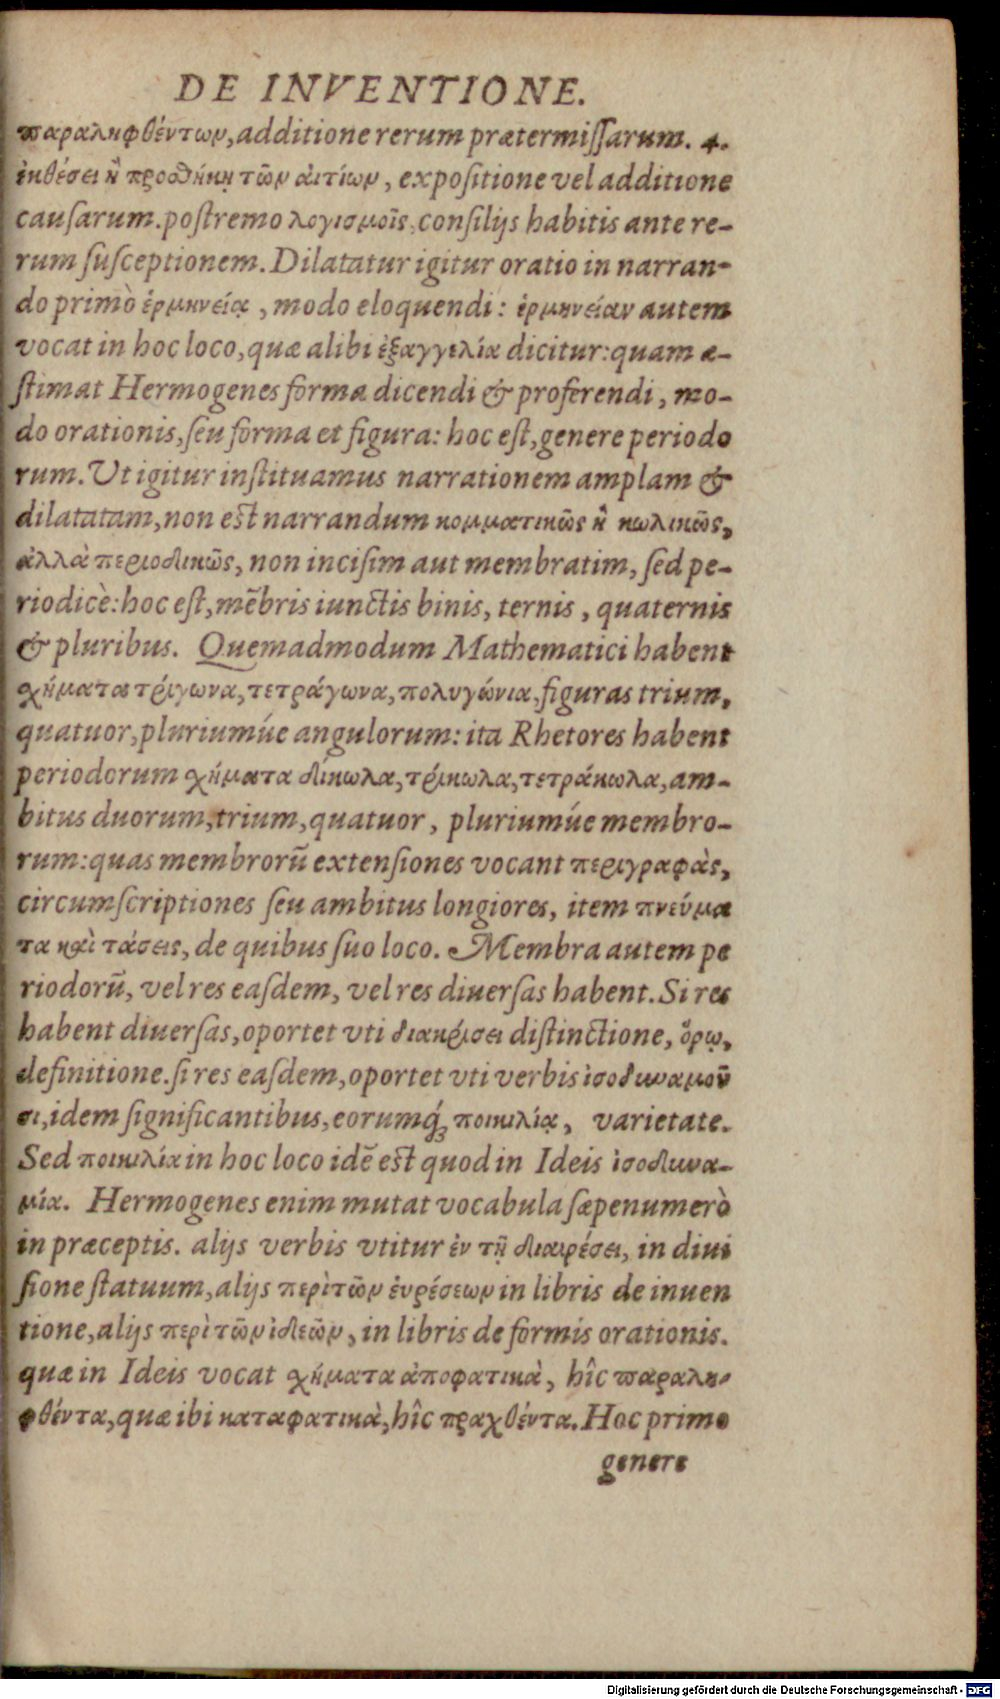 DE INVENTIONE.
παραληφθέντων, additione rerum prætermiſſarum. 4.
ἐκθέσει ἢ προσθήκῃ τῶν αἰτίων, expoſitione vel additione
cauſarum. poſtremo λογισμοῖς, conſilijs habitis ante re-
rum ſuſceptionem. Dilatatur igitur oratio in narran-
do primò ἑρμηνείᾳ, modo eloquendi: ἑρμηνείαν autem
vocat in hoc loco, quæ alibi ἐξαγγελία dicitur: quam æ-
ſtimat Hermogenes forma dicendi & proferendi, mo-
do orationis, ſeu forma et figura: hoc eſt, genere periodo
rum. Vt igitur inſtituamus narrationem amplam &
dilatatam, non eſt narrandum κομματικῶς ἢ κωλικῶς,
ἀλλὰ περιοδικῶς, non inciſim aut membratim, ſed pe-
riodicè: hoc eſt, mẽbris iunctis binis, ternis, quaternis
& pluribus. Quemadmodum Mathematici habent
χήματα τρίγωνα, τετράγωνα, πολυγώνια, figuras trium,
quatuor, pluriumúe angulorum: ita Rhetores habent
periodorum χήματα δίκωλα, τρίκωλα, τετράκωλα, am-
bitus duorum, trium, quatuor, pluriumúe membro-
rum: quas membrorũ extenſiones vocant περιγραφὰς,
circumſcriptiones ſeu ambitus longiores, item πνεύμα
τα καὶ τάσεις, de quibus ſuo loco. Membra autem pe
riodorũ, vel res eaſdem, vel res diuerſas habent. Si res
habent diuerſas, oportet vti διακρίσει diſtinctione, ὅρῳ,
definitione. ſi res eaſdem, oportet vti verbis ἰσοδυναμοῦ
σι, idem ſignificantibus, eorumq́; ποικιλίᾳ, varietate.
Sed ποικιλία in hoc loco idẽ eſt quod in Ideis ἰσοδυνα-
μία. Hermogenes enim mutat vocabula ſæpenumerò
in præceptis. alijs verbis vtitur ἐν τῇ διαιρέσει, in diui
ſione ſtatuum, alijs περὶ τῶν εὑρέσεων in libris de inuen
tione, alijs περὶ τῶν ἰδεῶν, in libris de formis orationis.
quæ in Ideis vocat χήματα ἀποφατικὰ, hîc παραλη-
φθέντα, quæ ibi καταφατικὰ, hîc πραχθέντα. Hoc primo
genere
Digitalisierung gefördert durch die Deutsche Forschungsgemeinschaft - DFG